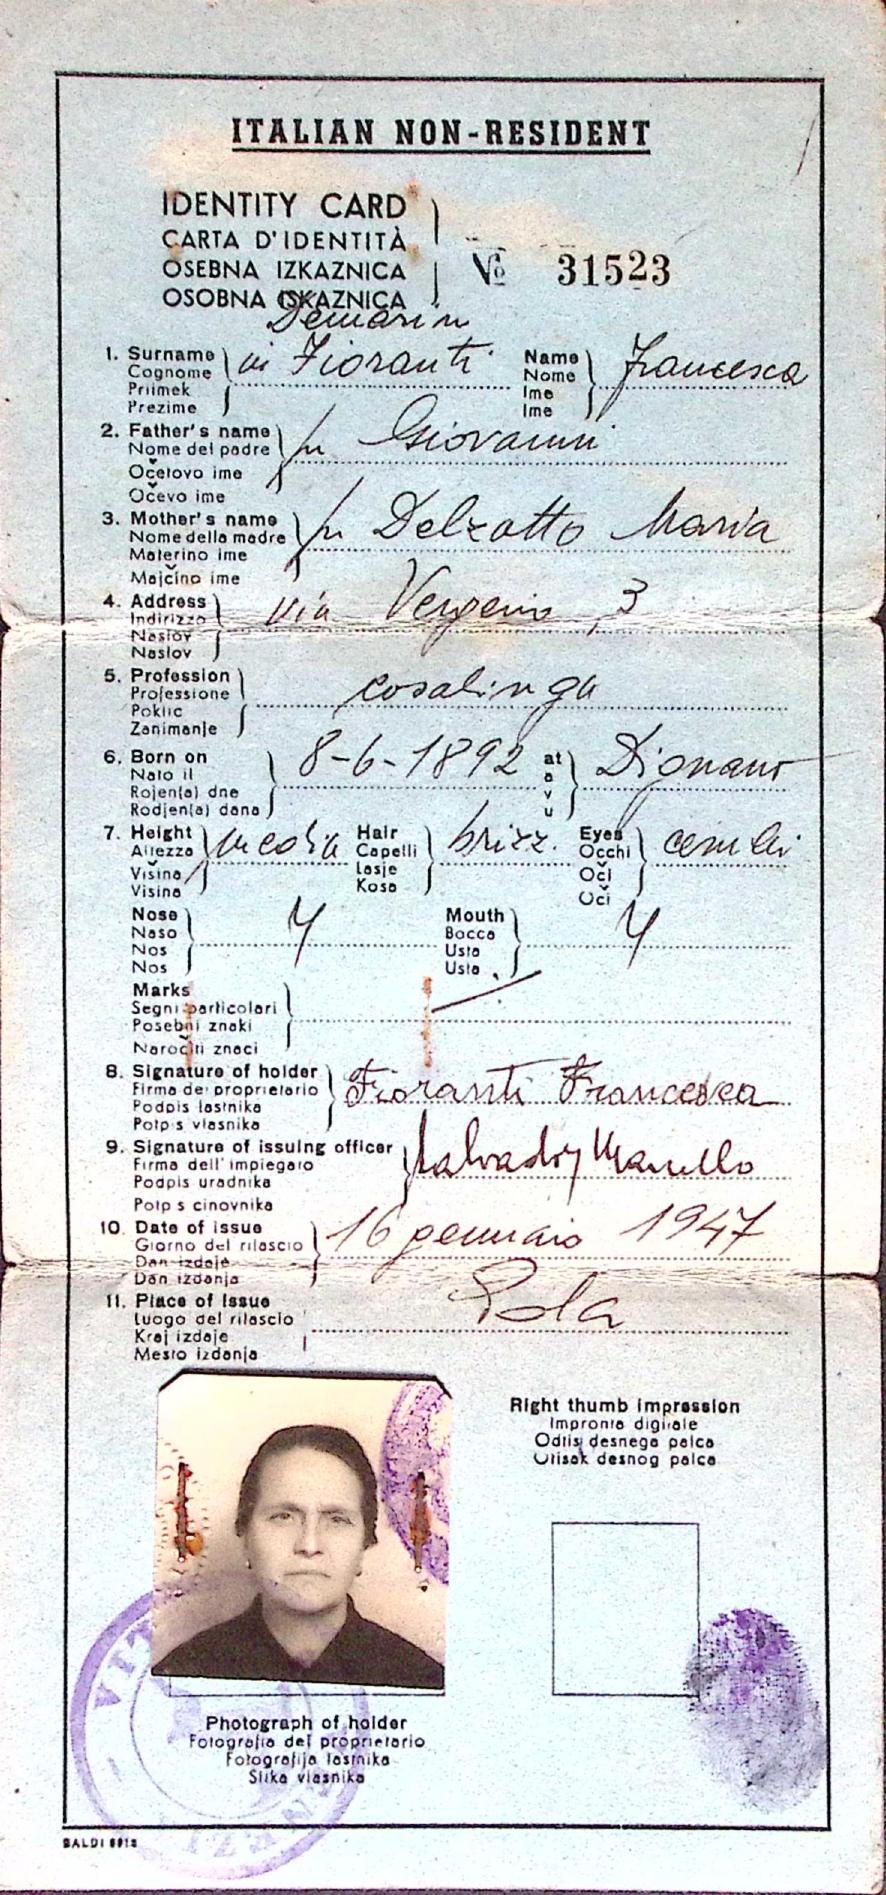 ITALIAN NON-RESIDENT
IDENTITY CARD
CARTA D'IDENTITÀ
OSEBNA IZKAZNICA
OSOBNA ISKAZNICA
№ 31523
Demarin
1. Surname in Fioranti Name Francesca
Cognome Nome
Priimek Ime
Prezime Ime
2. Father's name fu Giovanni
Nome del padre
Očetovo ime
Očevo ime
3. Mother's name fu Delzotto Maria
Nome della madre
Materino ime
Majčino ime
4. Address via Vergerio, 3
Indirizzo
Naslov
Naslov
5. Profession casalinga
Professione
Poklic
Zanimanje
6. Born on 8-6-1892 at Dignano
Nato il a
Rojen(a) dne v
Rodjen(a) dana u
7. Height media Hair brizz. Eyes
Altezza Capelli Occhi
Višina Lasje Oči
Visina Kosa Oči
Nose Mouth
Naso Bocca
Nos Usta
Nos Usta
Marks
Segni particolari
Posebni znaki
Naročiti znaci
8. Signature of holder Fioranti Francesca
Firma del proprietario
Podpis lastnika
Potpis vlasnika
9. Signature of issuing officer
Firma dell'impiegato
Podpis uradnika
Potpis cinovnika
10. Date of issue 16 gennaio 1947
Giorno del rilascio
Dan izdaje
Dan izdanja
11. Place of Issue Pola
Luogo del rilascio
Kraj izdaje
Mesto izdanja
Right thumb impression
Impronta digitale
Odtis desnega palca
Otisak desnog palca
Photograph of holder
Fotografia del proprietario
Fotografija lastnika
Slika vlasnika